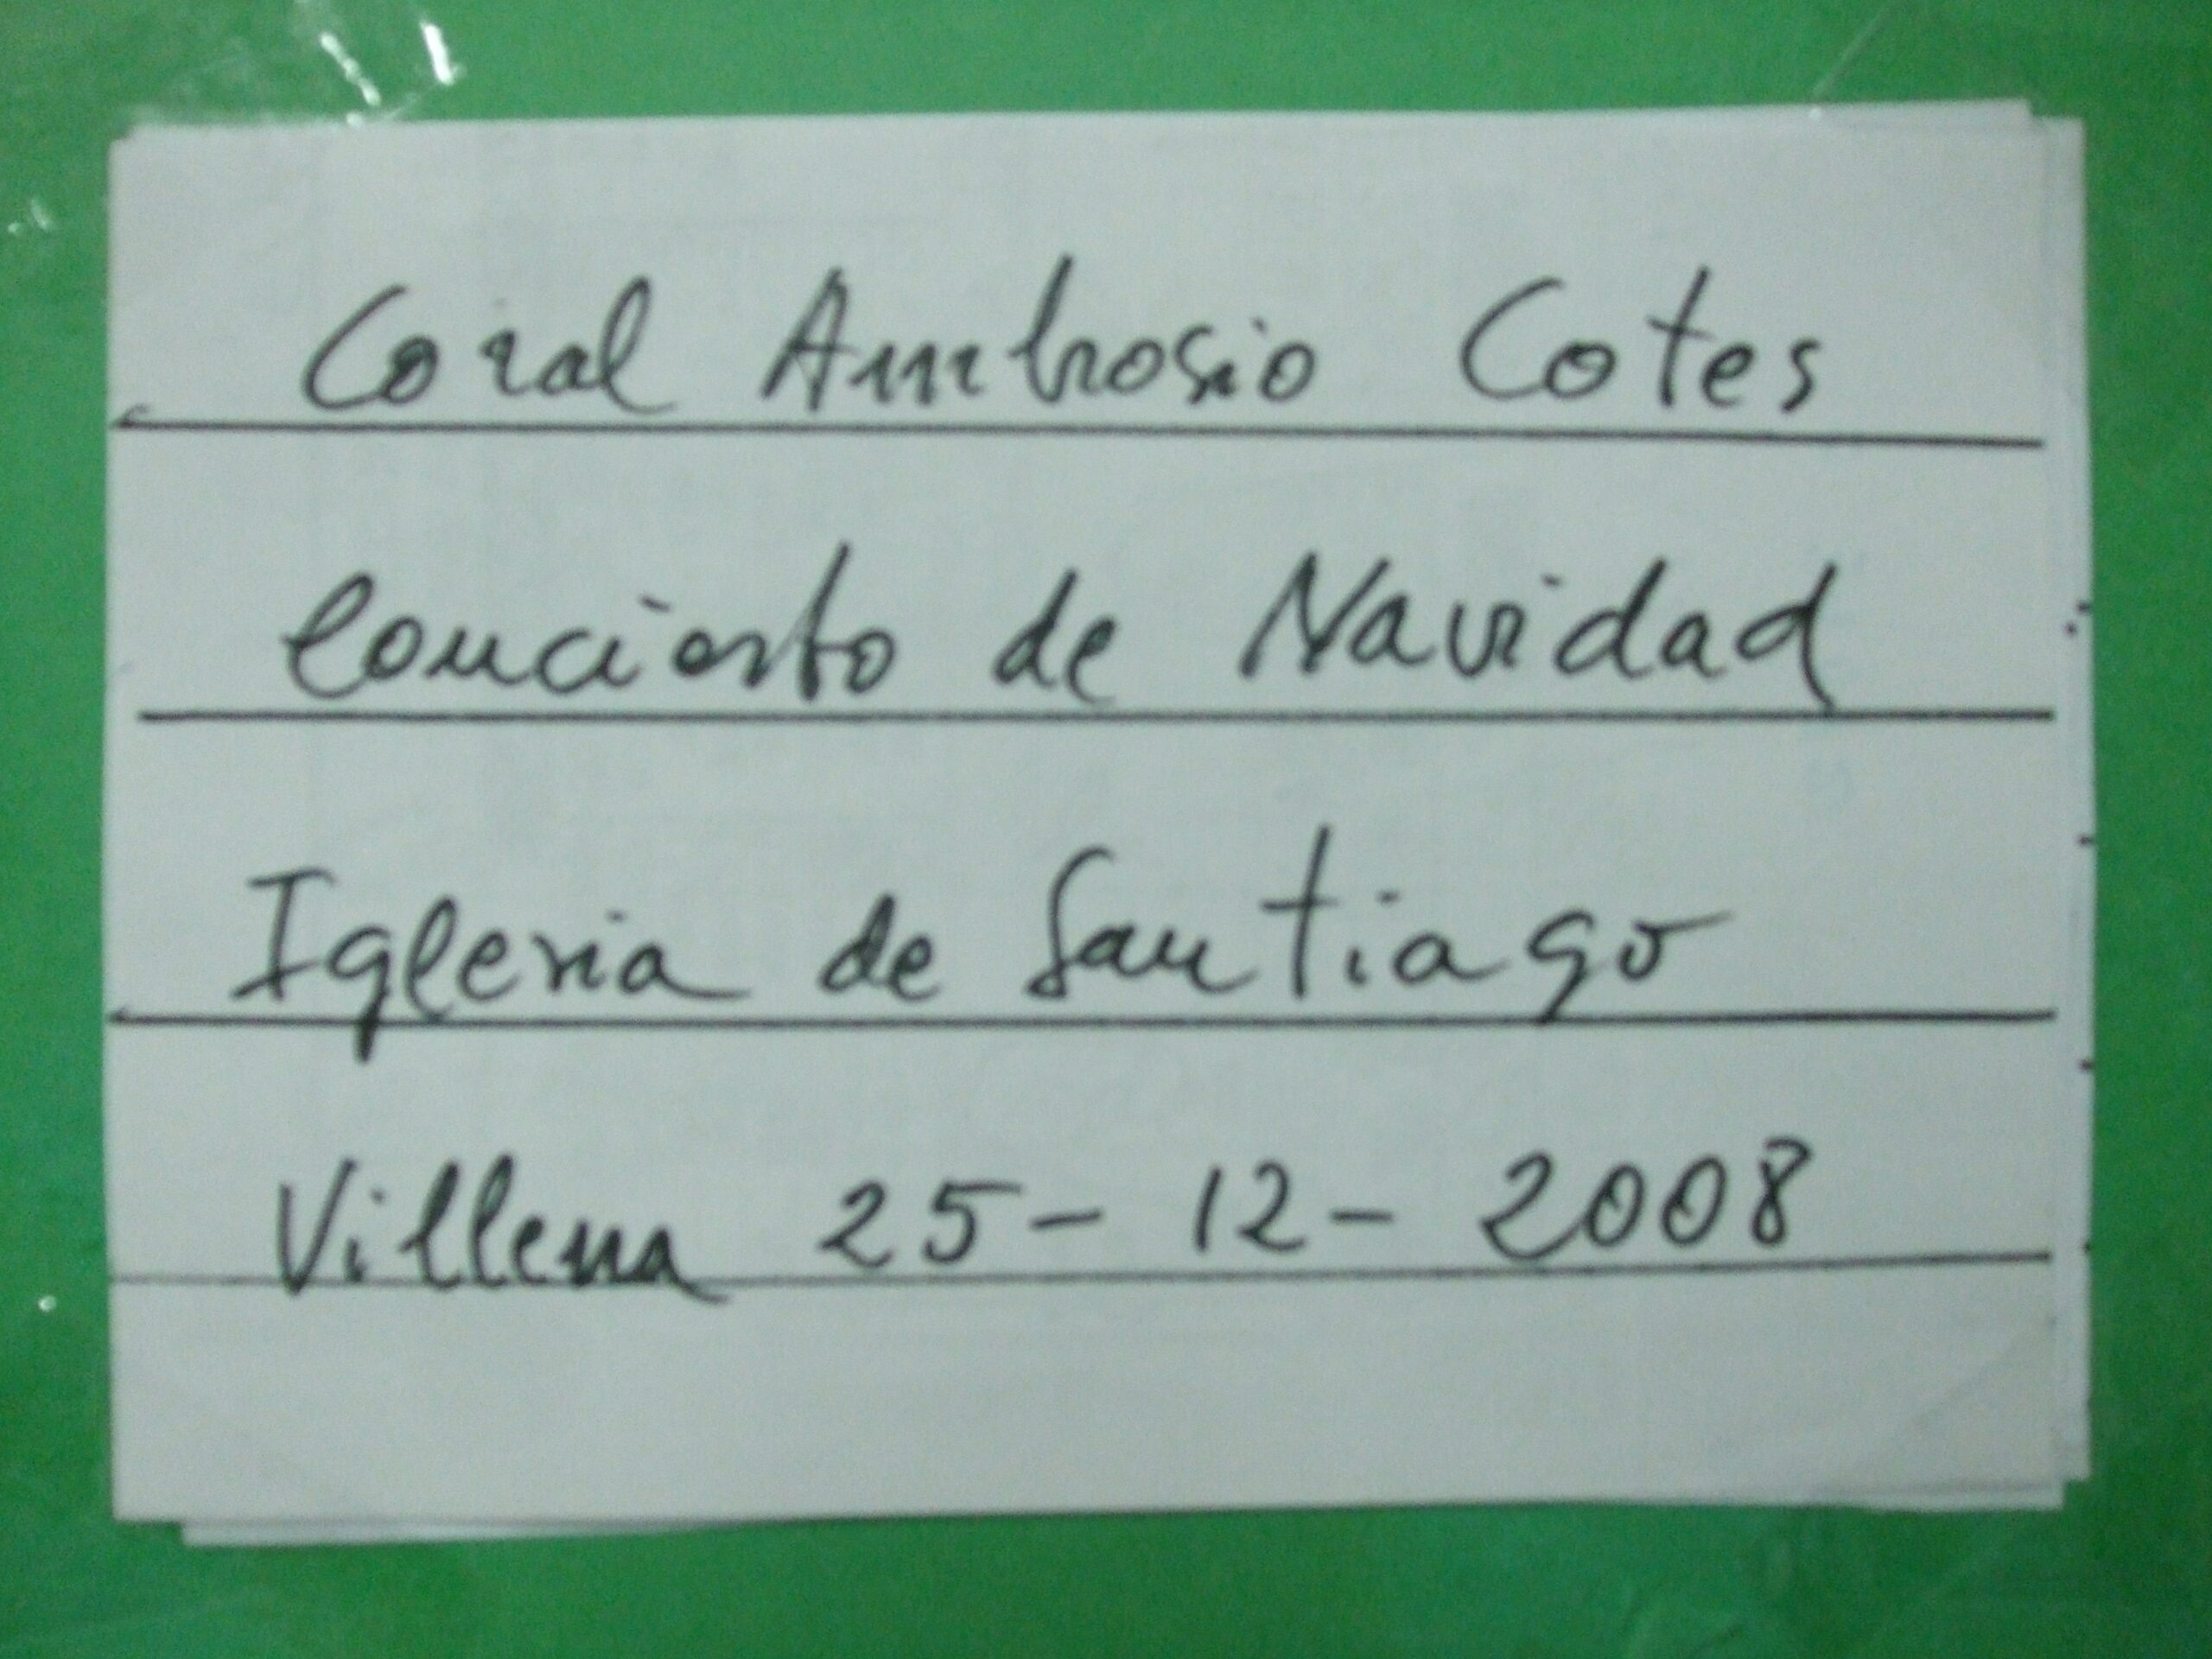 Coral Ambrosio Cotes
Concierto de Navidad
Iglesia de Santiago
Villena 25-12-2008